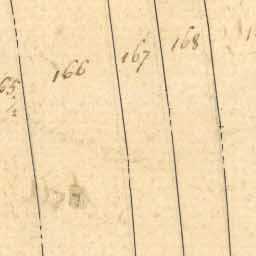 165
½
166
167
168